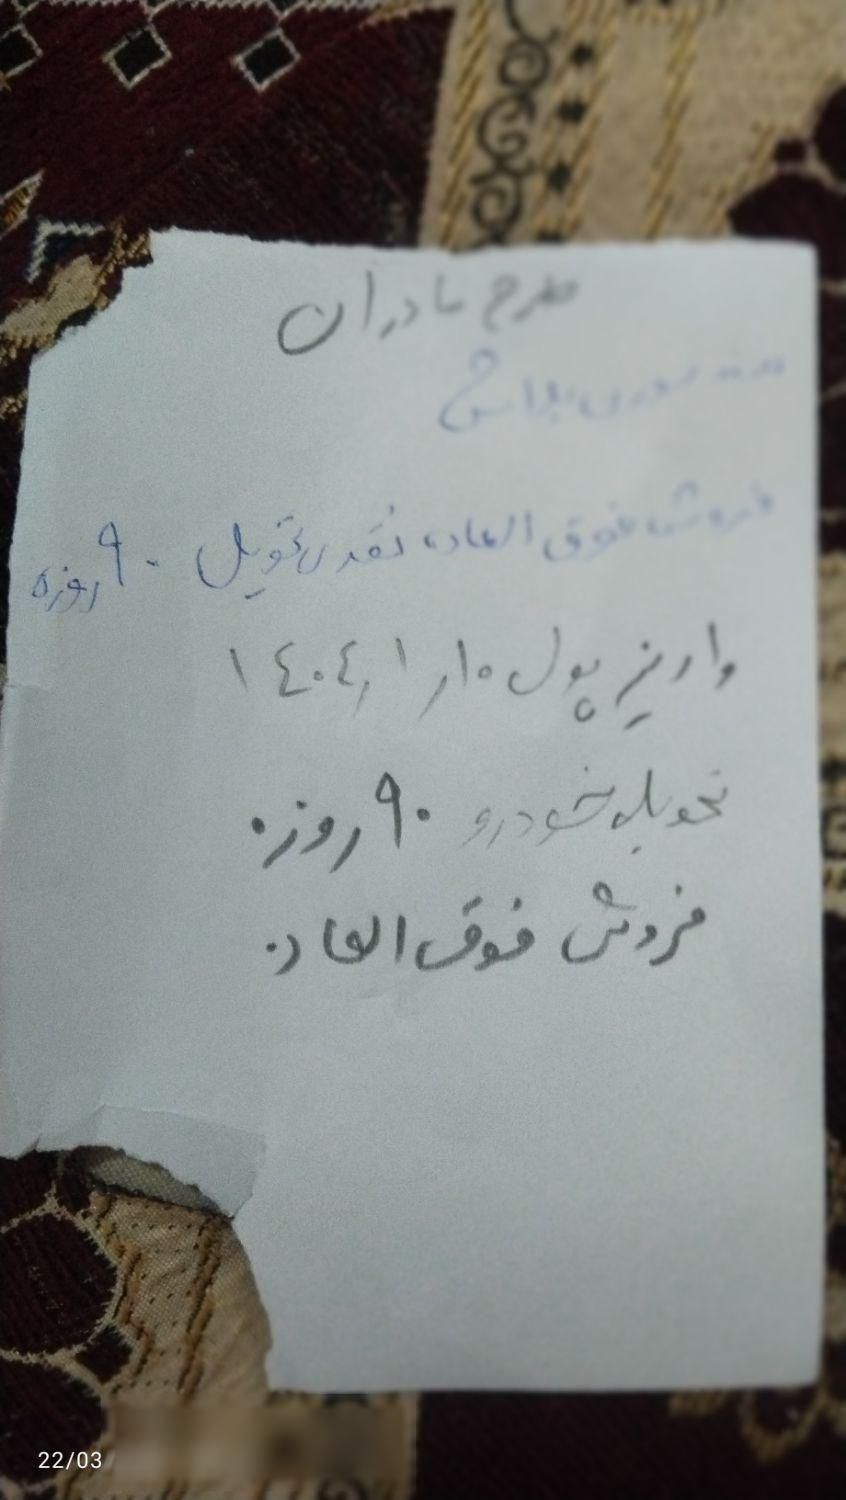 طرح مادران
فروش فوق العاده نقدی تحویل ۹۰ روزه
واریز پول ۱۴۰۴/۱/۱۰
تحویل خودرو ۹۰ روزه
فروش فوق العاده
22/03